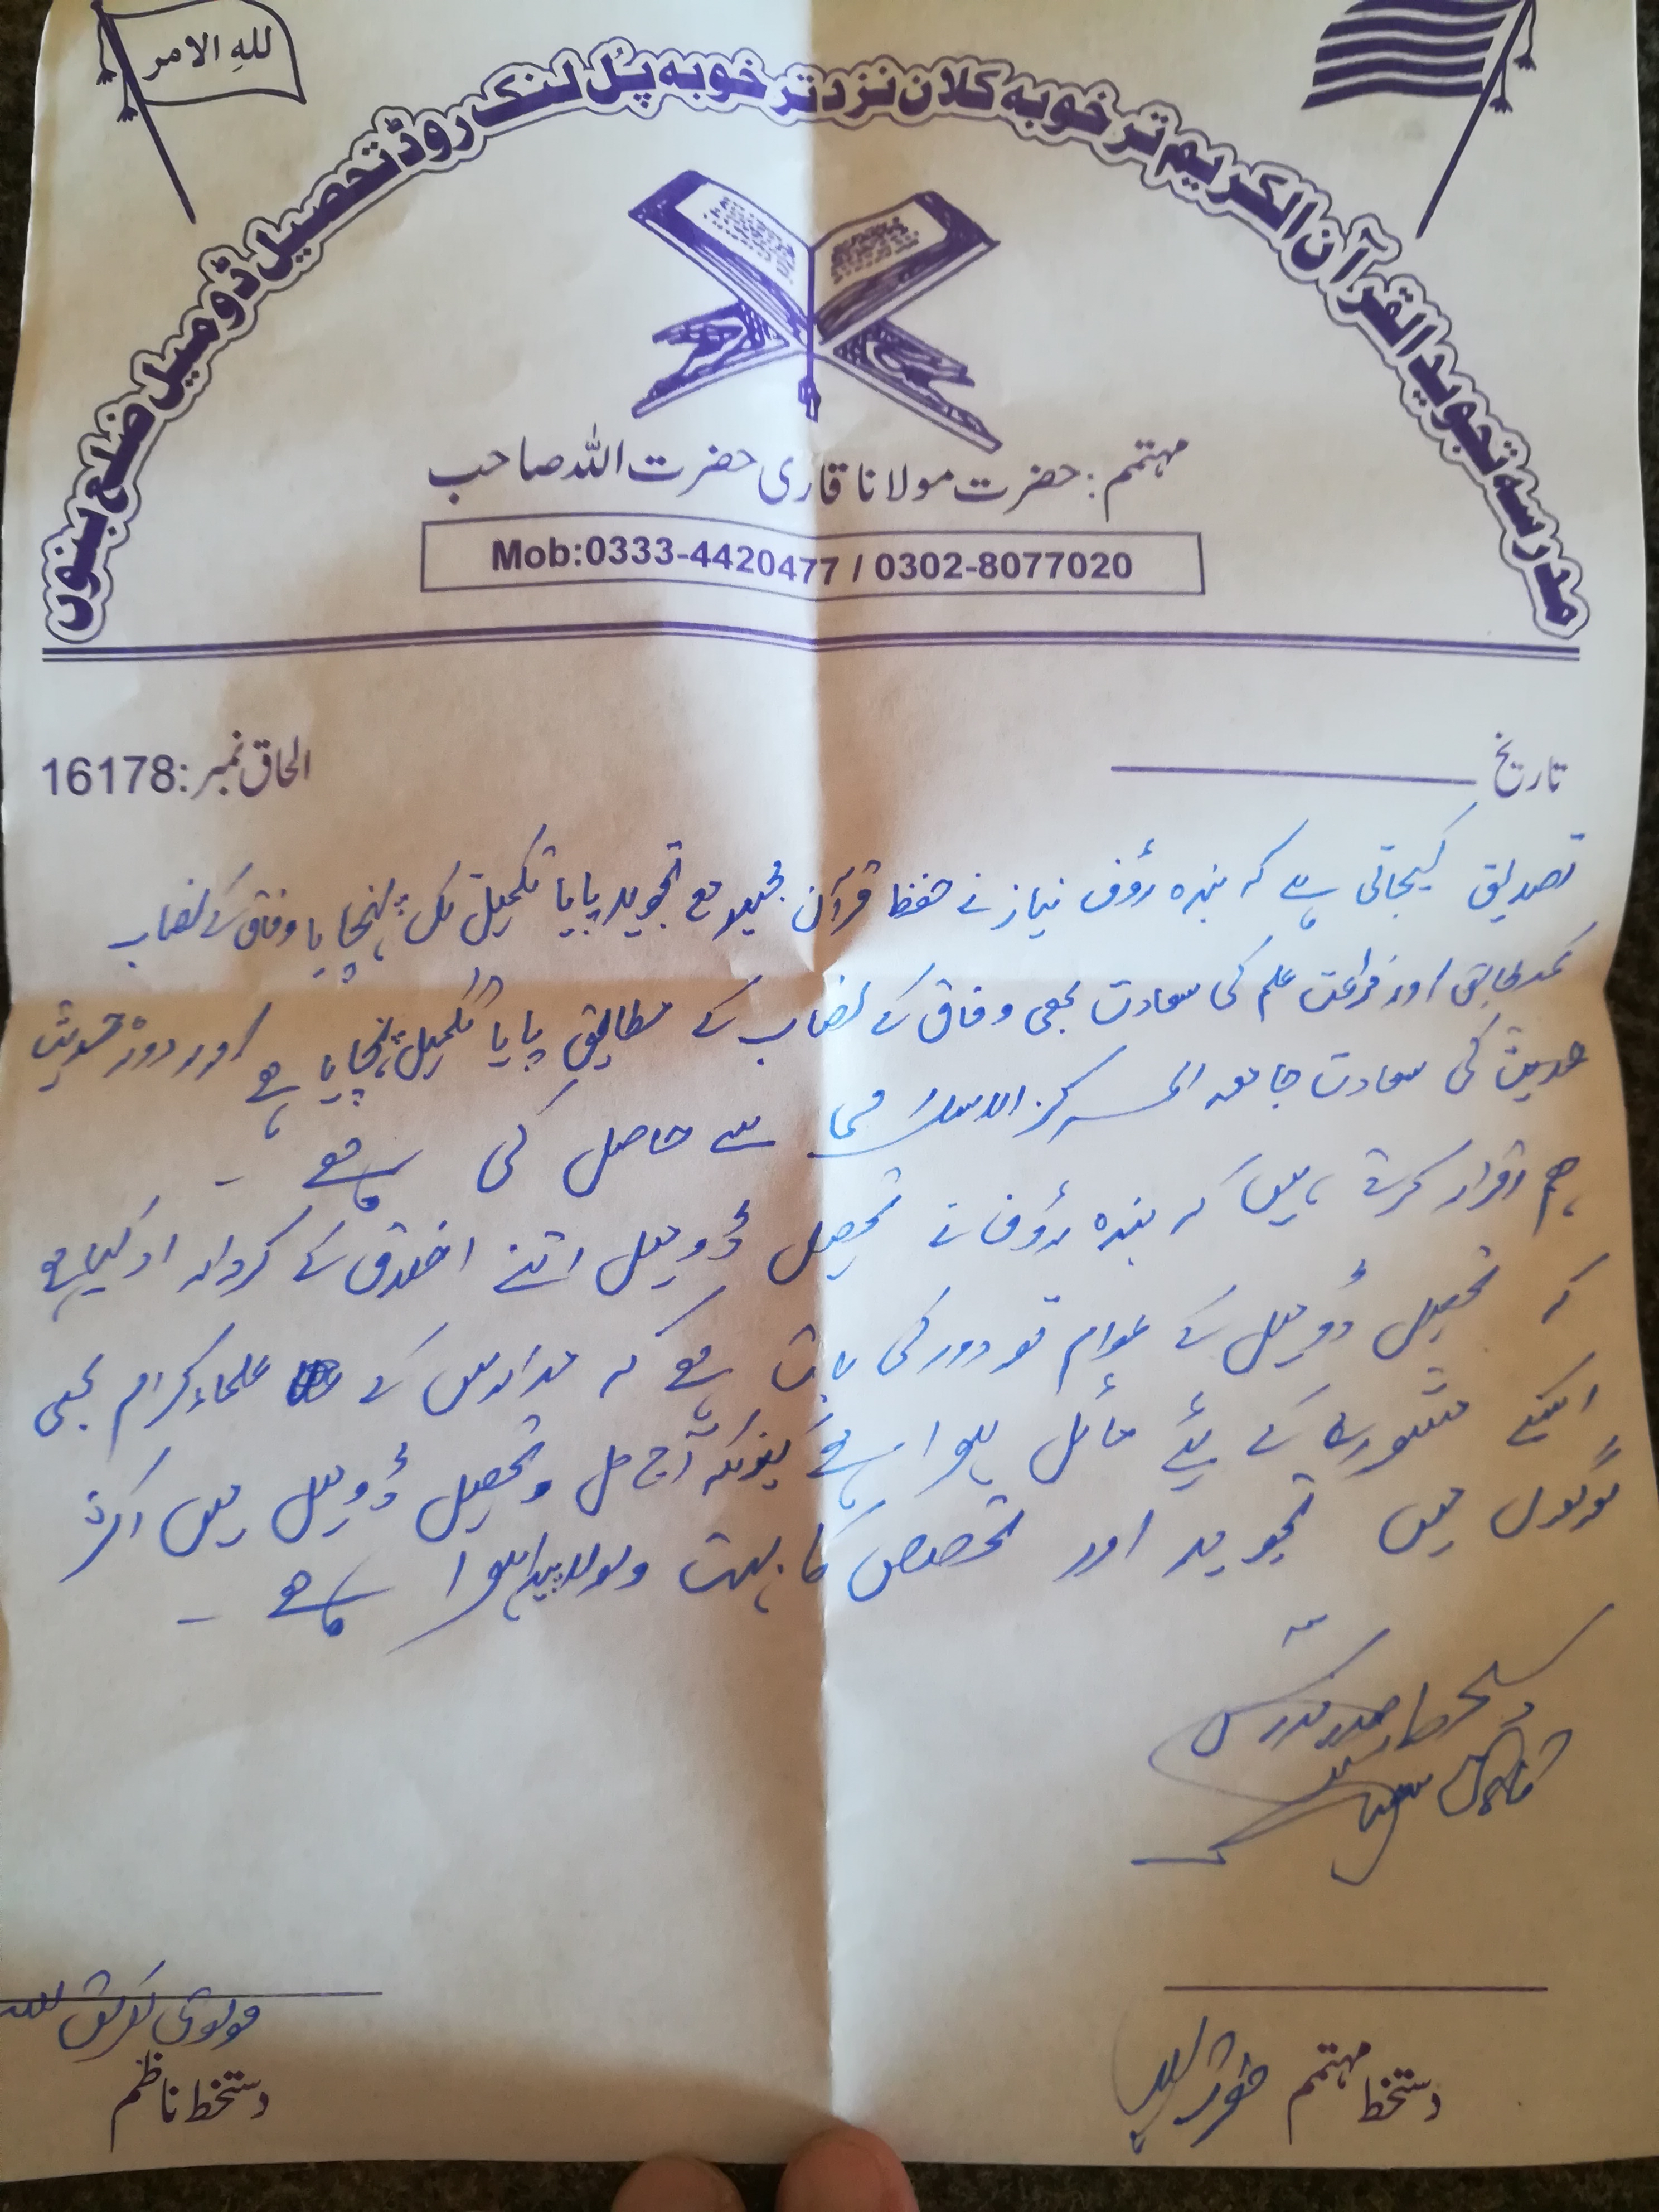 للہِ الامر
مدرسہ تجوید القرآن الکریم ترخوبہ کلاں نزد ترخوبہ پُل لنک روڈ تحصیل ڈومیل ضلع بنوں
مہتمم: حضرت مولانا قاری حضرت اللہ صاحب
Mob:0333-4420477 / 0302-8077020
تاریخ
الحاق نمبر: 16178
تصدیق کیجاتی ہے کہ بندہ رؤف نیاز نے حفظ قرآن مجید مع تجوید پایا تکمیل تک پہنچایا وفاق کے نصاب
کے مطابق اور فراغت علم کی سعادت بھی وفاق کے نصاب کے مطابق پایا تکمیل پہنچایا ہے اور دورہ حدیث
حدیث کی سعادت جامعہ المرکز الاسلامی سے حاصل کی ہے ۔
ہم اقرار کرتے ہیں کہ بندہ رؤف نے تحصیل ڈومیل اتنے اخلاق کے کردار ادا کیا ہے
کہ تحصیل ڈومیل کے عوام تو دور کی بات ہے کہ مدارس کے علماء کرام بھی
اسکے مشورے کے لئے مائل ہوا ہے کیونکہ آج کل تحصیل ڈومیل میں اکثر
لوگوں میں تجوید اور تخصص کا بہت ولولہ پیدا ہوا ہے ۔
دستخط صدر مدرس
دستخط مہتمم
مولوی
دستخط ناظم